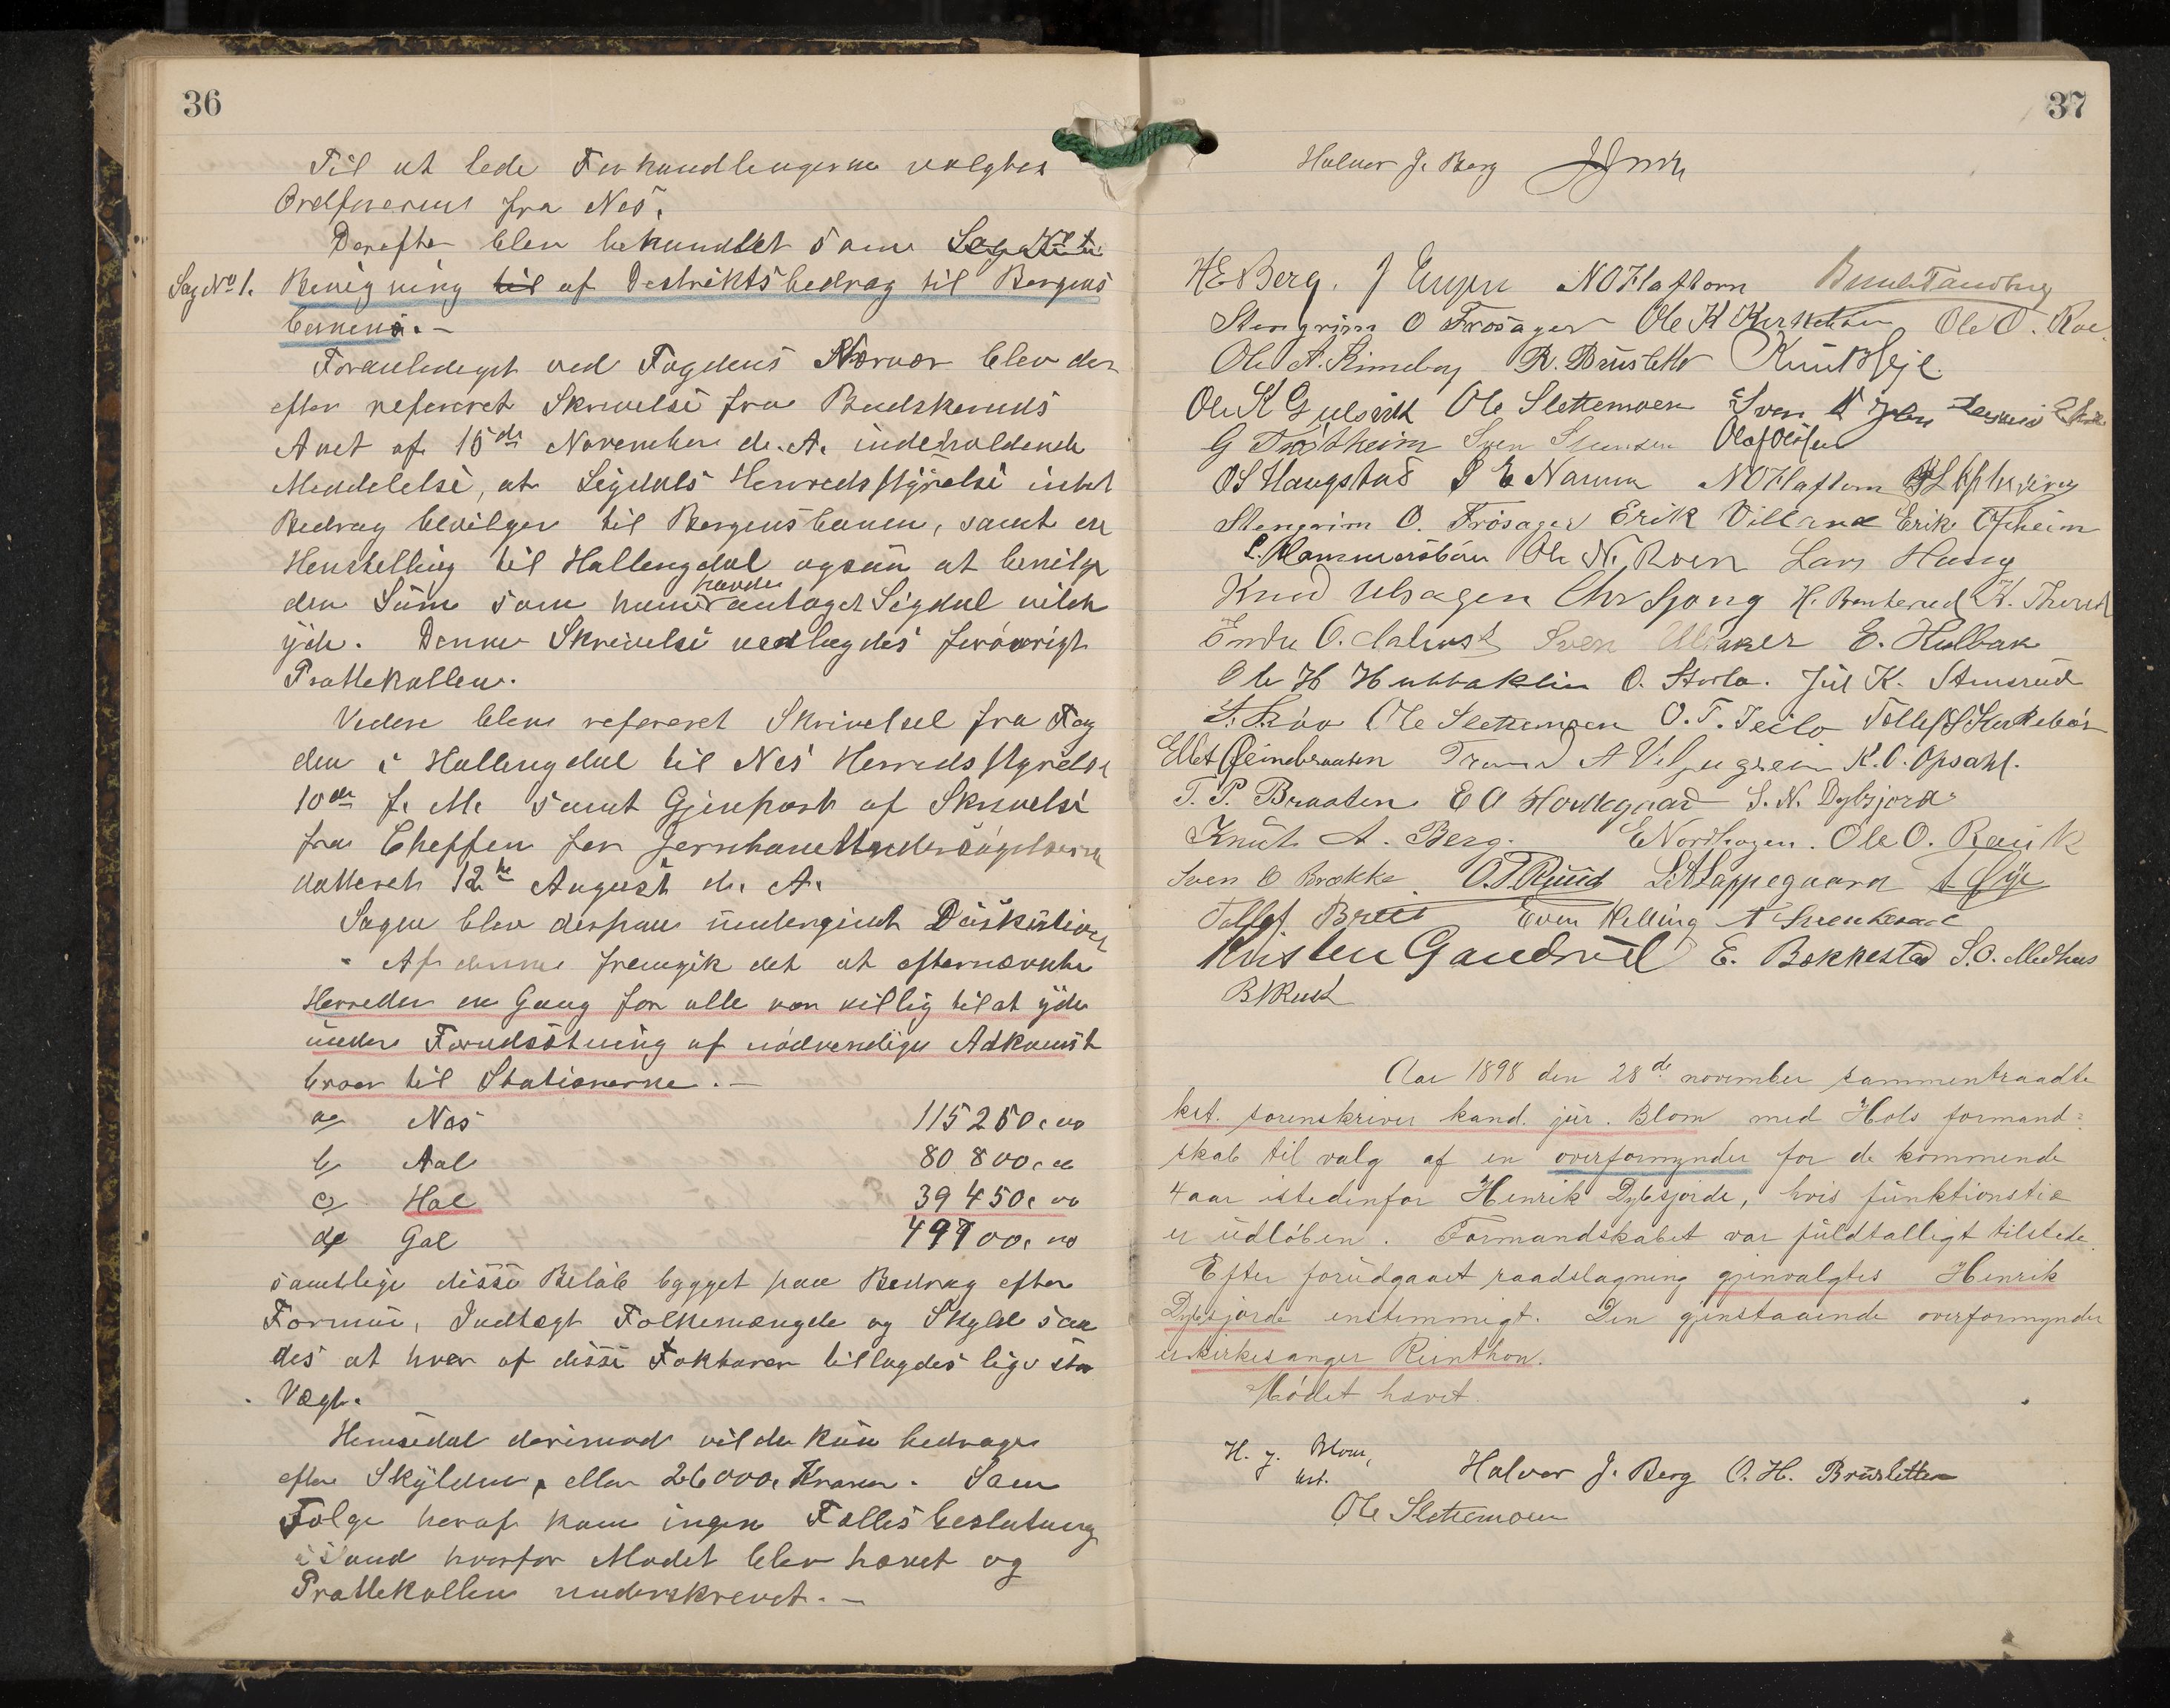 36
Til at lede Forhandlingerne valgtes
Ordføreren fra Nes.
Derefter blev behandlet som
Sag No 1. Bevigning til af Destriktsbedrag til Bergens
banen.—
Foranlediget ved Fogdens Nærvær blev der
efter refereret Skrivelse fra Budskeruds
Amt af 15de November d. A. indeholdende
Meddelelse, at Sigdals Herredsstyrelse intet
Bedrag bevilger til Bergensbanen, samt en
Henstilling til Hallengdal ogsaa at bevilge
den Sum som havde antaget Sigdal vilde
yde. Denne Skrivelse vedlagdes forøvrigt
Prottekollen.
Videre blev refereret Skrivelse fra Fog
den i Hallengdal til Nes Herredsstyrelse
10de f. M. samt Gjenpart af Skrivelse
fra Cheffen for Jernbaneundersøgelserne
datteret 12te August d. A.
Sagen blev derpaa undergivet Diskution
Af denne fremgik det at efternævnte
Herreder en Gang for alle var villig til at yde
under Forudsætning af nødvendige Adkomst
veier til Stationerne.—
a) Nes 115250,00
b) Aal 80800,00
c) Hol 39450,00
d) Gol 49700,00
samtlige disse Beløb bygget paa Bedrag efter
Formue, Indtægt Folkemængde og Skyld saa
des at hver af disse Faktorer tillagdes lige stor
Vægt.
Hemsedal derimod vilde kun bedrage
efter Skylden, eller 26000, Kroner. Som
Følge heraf kom ingen Fælles beslutning
istand hvorfor Mødet blev hævet og
Prottekollen underskrevet.—
37
Halvor J. Berg
HEBerg. NOHaftorn
Stengrim O Frøsager Ole K Kirkebøen Ole O. Roe
Ole A. Rimeby R. Brusletto Knut Heje.
Ole K Gulsvik Ole Slettemoen Sven
G Trøstheim Sven Olaf Olsen
OS Haugstad S E Narum NOHaftorn
Stengrim O. Frøsager Erik Villand Erik
L. Hammersbøen Ole N. Roen Lars
Knud Ulsagen Chr Sjong H. K. Thorud
Endre O. Sven Ulsaker E. Halbak
Ole H O. Storla. Jul K. Stensrud
Ole Slettemoen O. T. Teilo Tollef S Kirkebøn
Trond A K. O. Opsahl.
T. P. Braaten E O S. N. Dybsjord
Knut A. Berg. E Nordhagen. Ole O. Rauk
Sven O Brække. O.T.Ruud L A Lappegaard A Øye
Tollef Even Helling A Svenkerud
Kristen Gandrud E. Bækkestad S. O. Medhus
B Rust
Aar 1898 den 28de november sammentraadte
kst. sorenskriver kand. jur. Blom med Hols formand=
skab til valg af en overformynder for de kommende
4 aar istedenfor Henrik Dybsjorde, hvis funktionstid
er udløben. Formandskabet var fuldtalligt tilstede.
Efter forudgaaet raadslagning gjenvalgtes Henrik
Dybsjorde enstemmigt. Den gjenstaaende overformynder
er kirkesanger Runthon.
Mødet hævet.
H. J. Blom,
kst. Halvor J. Berg O. H. Brusletten
Ole Slettemoen